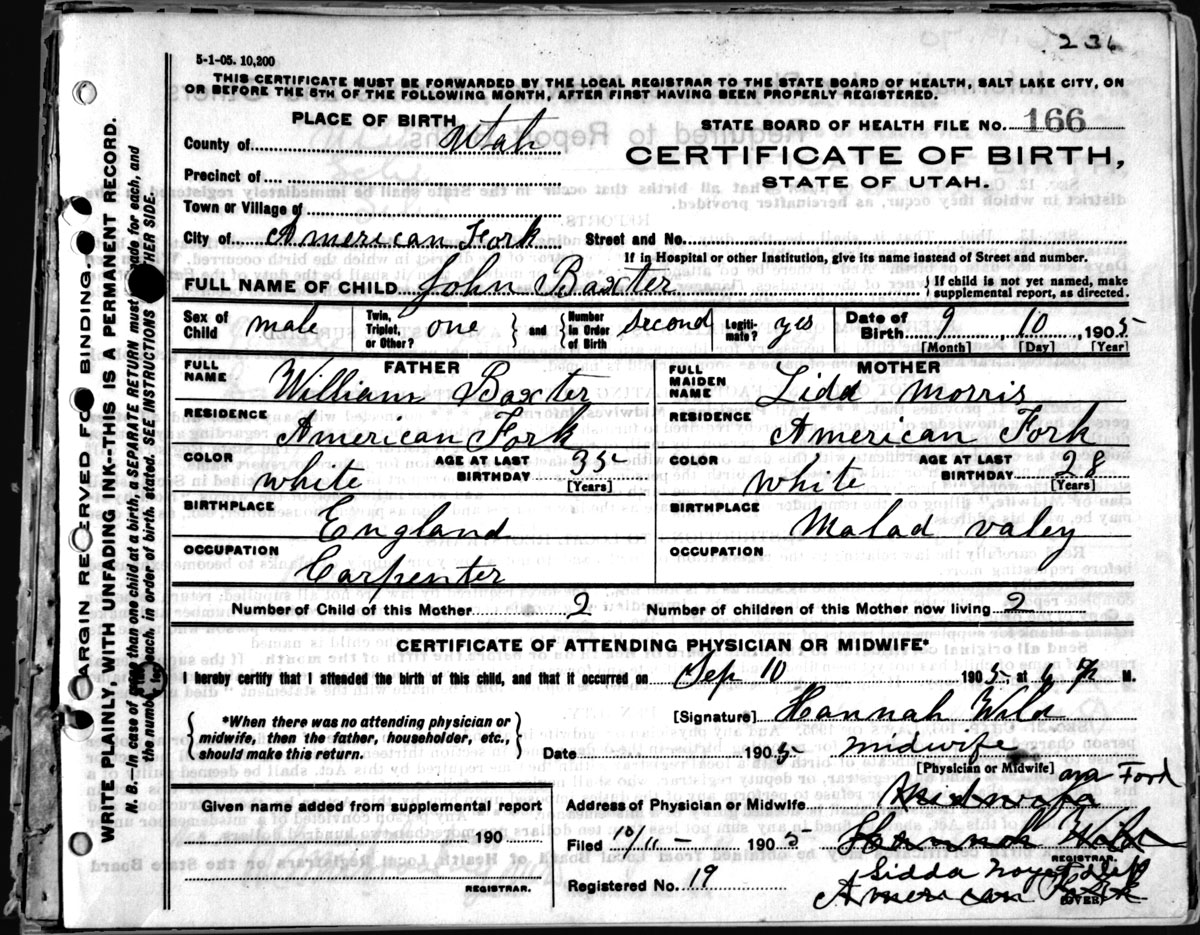 236
5-1-05. 10,200
THIS CERTIFICATE MUST BE FORWARDED BY THE LOCAL REGISTRAR TO THE STATE BOARD OF HEALTH, SALT LAKE CITY, ON
OR BEFORE THE 5TH OF THE FOLLOWING MONTH, AFTER FIRST HAVING BEEN PROPERLY REGISTERED.
PLACE OF BIRTH
STATE BOARD OF HEALTH FILE NO. 166
County of Utah
CERTIFICATE OF BIRTH,
Precinct of
STATE OF UTAH.
Town or Village of
City of American Fork Street and No.
If in Hospital or other Institution, give its name instead of Street and number.
FULL NAME OF CHILD John Baxter } If child is not yet named, make supplemental report, as directed.
Sex of Child male Twin, Triplet, or Other? one } and { Number in Order of Birth second Legiti-mate? yes Date of Birth 9 10 1905
[Month] [Day] [Year]
FATHER MOTHER
FULL NAME William Baxter FULL MAIDEN NAME Lidd Morris
RESIDENCE American Fork RESIDENCE American Fork
COLOR white AGE AT LAST BIRTHDAY 35 [Years] COLOR white AGE AT LAST BIRTHDAY 28 [Years]
BIRTHPLACE England BIRTHPLACE Malad valey
OCCUPATION Carpenter OCCUPATION
Number of Child of this Mother 2 Number of children of this Mother now living 2
CERTIFICATE OF ATTENDING PHYSICIAN OR MIDWIFE*
I hereby certify that I attended the birth of this child, and that it occurred on Sep 10 1905 at 6 M.
{ *When there was no attending physician or midwife, then the father, householder, etc., should make this return. }
[Signature] Hannah Wild
Date 1905 midwife
[Physician or Midwife]
Given name added from supplemental report
190
REGISTRAR.
Address of Physician or Midwife
Filed 10/11 - 1905 Hannah Wild
REGISTRAR.
Registered No. 19 Lidda
American Fork
(OVER)
MARGIN RESERVED FOR BINDING.
WRITE PLAINLY, WITH UNFADING INK--THIS IS A PERMANENT RECORD.
N. B.--In case of more than one child at a birth, a SEPARATE RETURN must be made for each, and
the number of each, in order of birth, stated. SEE INSTRUCTIONS ON OTHER SIDE.